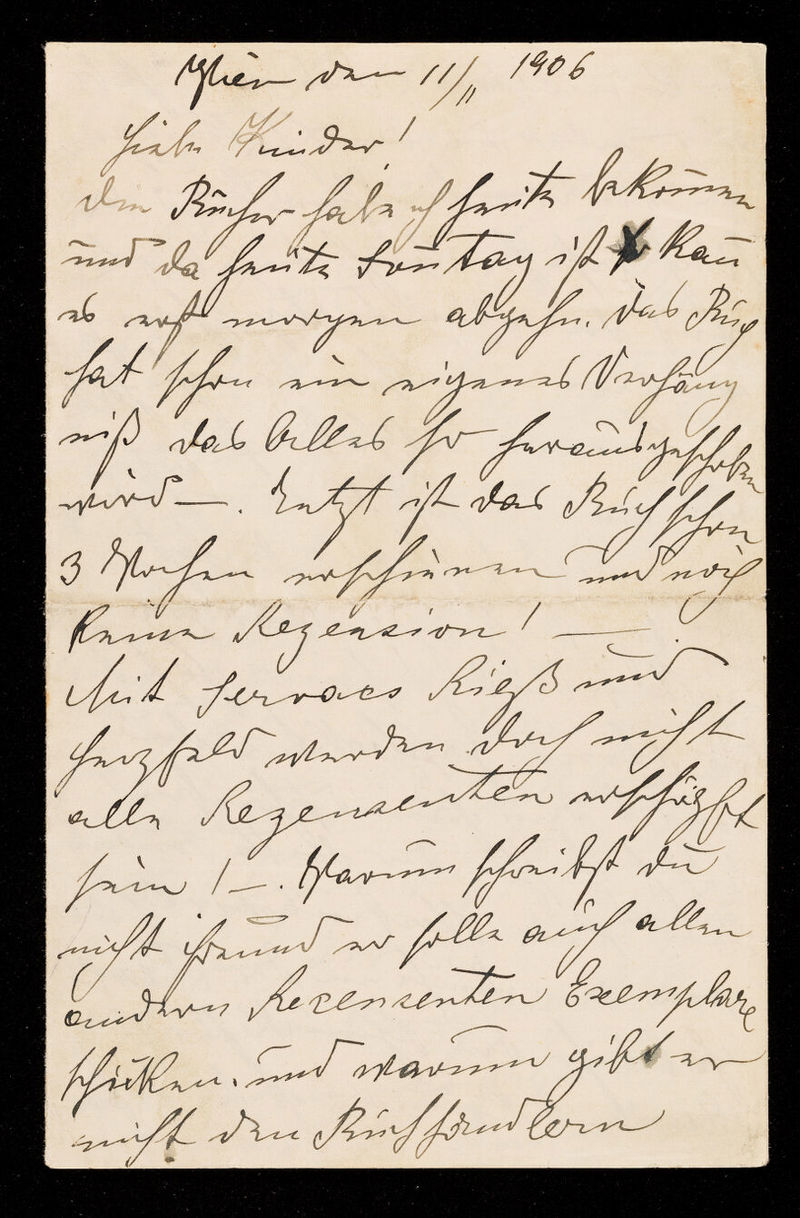 Wien den 11/11 1906
Liebe Kinder!
Die Bücher habe ich heute bekomen
und da heute Sontag ist kan
es erst morgen abgehn. Das Buch
hat schon ein eigenes Verhäng
niß das Alles so herausgeschoben
wird —. Jetzt ist das Buch schon
3 Wochen erschienen und noch
keine Rezension! —
Mit Servaes Rieß und
Herzfeld werden doch nicht
alle Rezensenten erschöpft
sein! —. Warum schreibst du
nicht Freund er solle auch allen
andern Rezensenten Exemplare
schicken. und warum gibt er
nicht den Buchhändlern